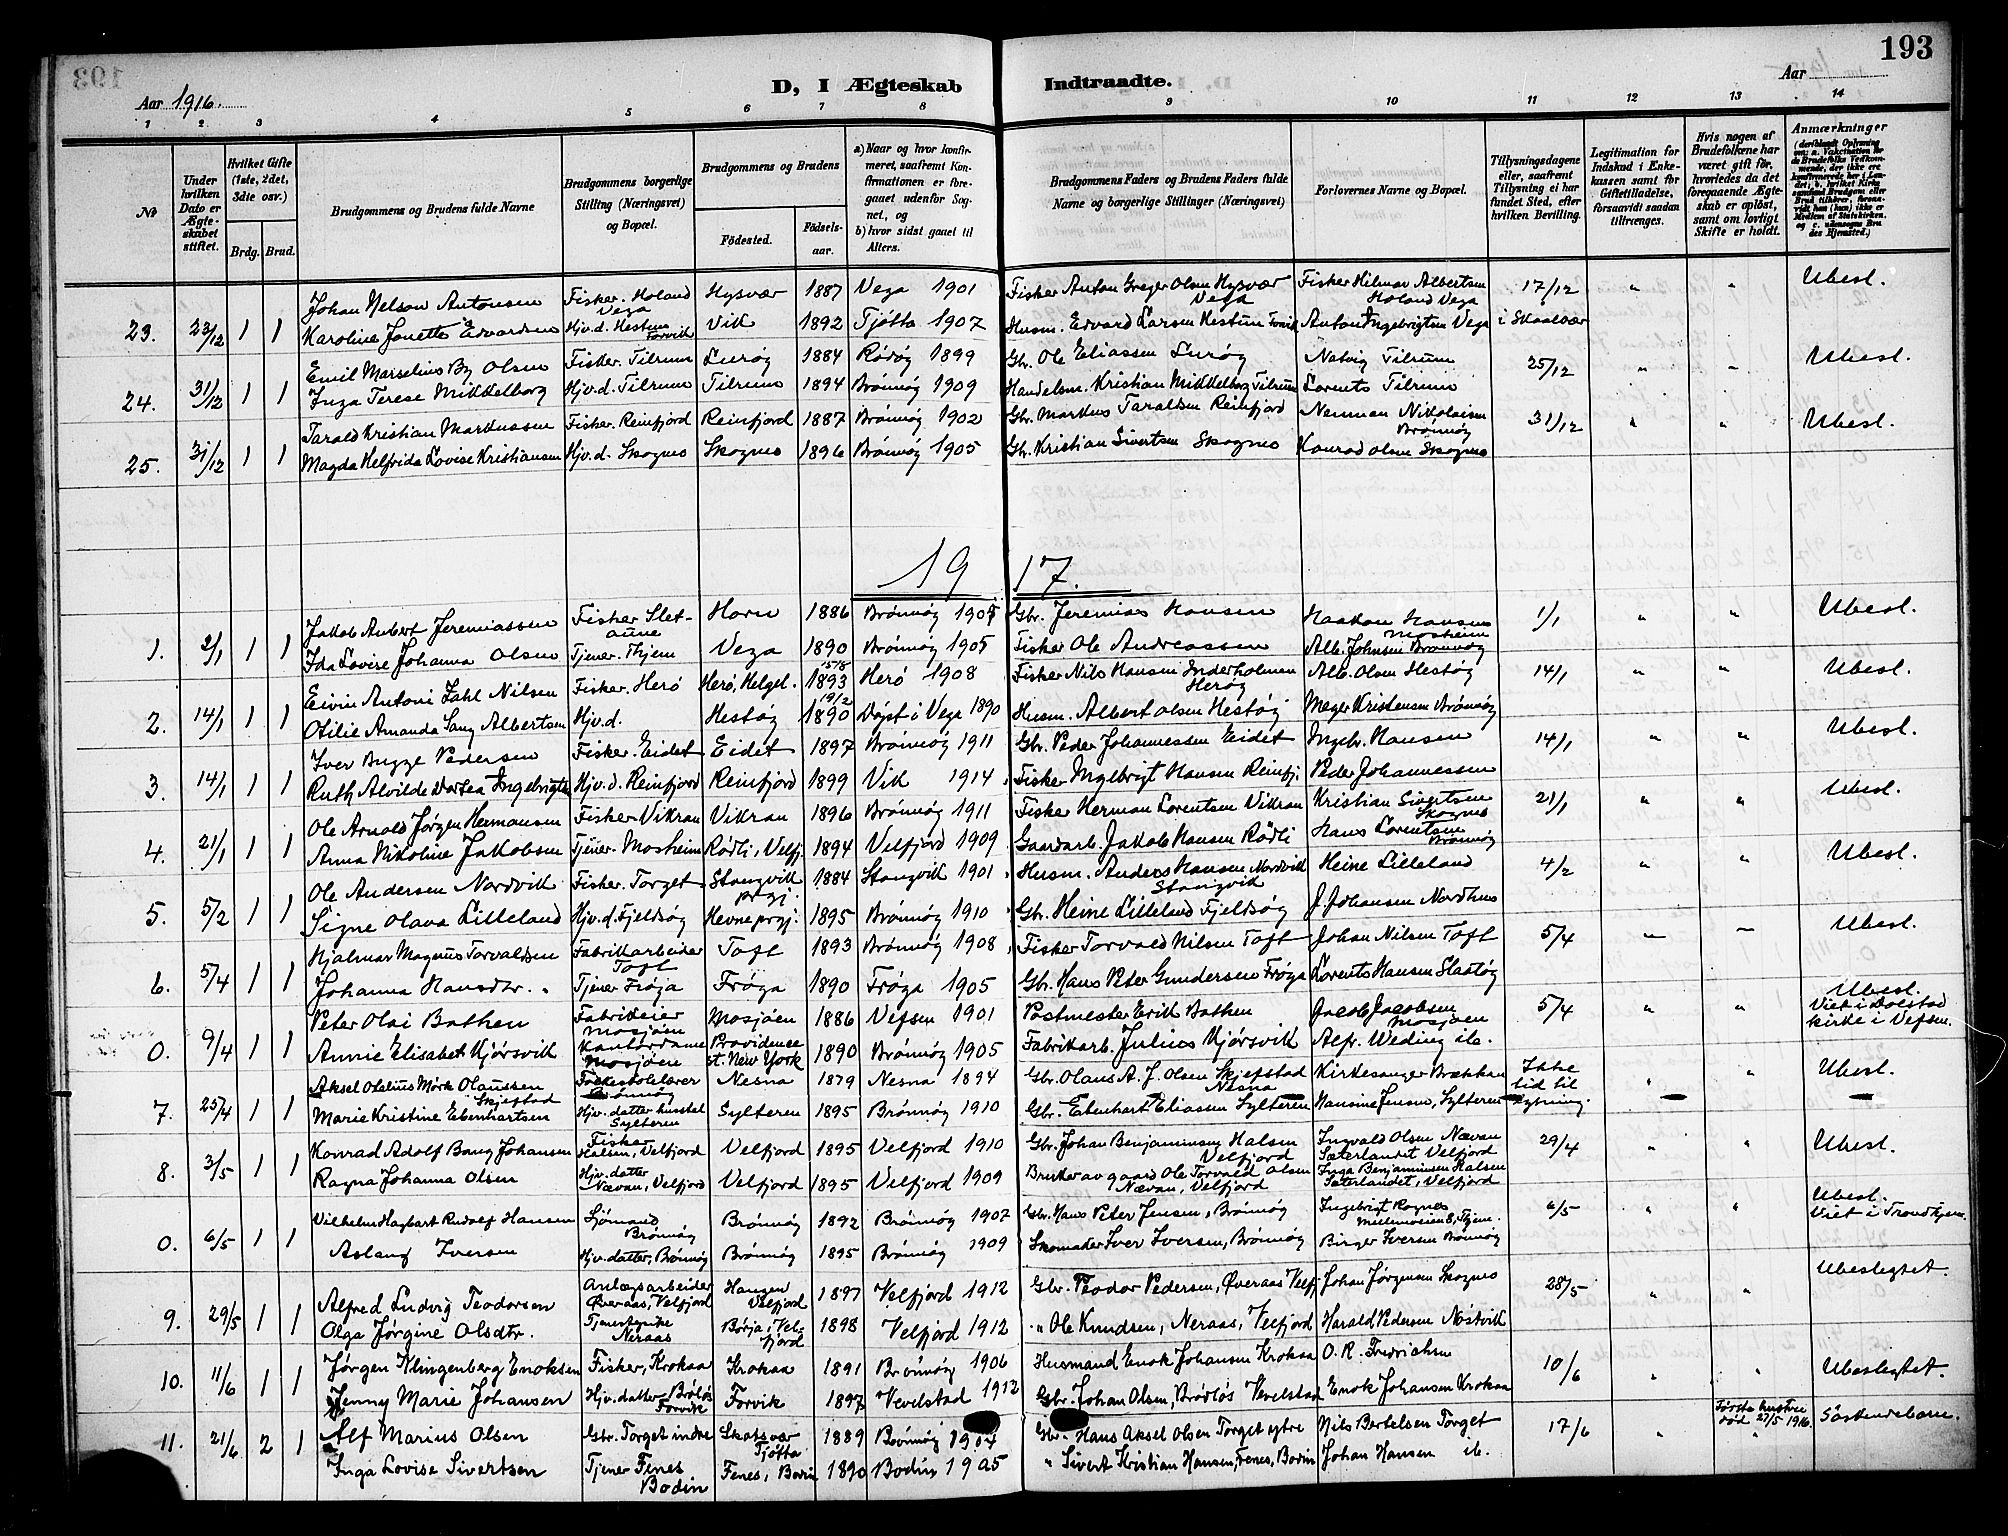 193
Aar 1916. D, I Ægteskab Indtraadte. Aar
1 2 3 4 5 6 7 8 9 10 11 12 13 14
No
Under hvilken Dato er Ægteskabet stiftet.
Hvilket Gifte (1ste, 2det, 3die osv.)
Brdg. Brud.
Brudgommens og Brudens fulde Navne
Brudgommens borgerlige Stilling (Næringsvei) og Bopæl.
Brudgommens og Brudens
Fødested. Fødselsaar.
a) Naar og hvor konfirmeret, saafremt Konfirmationen er foregaaet udenfor Sognet, og
b) hvor sidst gaaet til Alters.
Brudgommens Faders og Brudens Faders fulde Navne og borgerlige Stillinger (Næringsvei)
Forlovernes Navne og Bopæl.
Tillysningsdagene eller, saafremt Tillysning ei har fundet Sted, efter hvilken Bevilling.
Legitimation for Indskud i Enkekassen samt for Giftetilladelse, forsaavidt saadan tiltrænges.
Hvis nogen af Brudefolkene har været gift før, hvorledes da det foregaaende Ægteskab er opløst, samt om lovligt Skifte er holdt.
Anmærkninger
Johan Nelson Antonsen Fisker. Holand Vega Hysvær 1887 Vega 1901 Fisker Anton Greger Olsen Hysvær Vega Fisker Hilmar Albertsen Holand Vega 17/12 " " Ubesl.
23. 23/12 1 1 Karoline Jonette Edvardsen Hjv.d. Hestun Forvik Vik 1892 Tjøtta 1907 Husm. Edvard Larsen Hestun Forvik Anton Ingebrigtsen Vega i Skaalvær
Emil Marselius By Olsen Fisker. Tilrum Lurøy 1884 Rödöy 1899 Gbr. Ole Eliassen Lurøy Natvig Tilrum 25/12 " " Ubesl.
24. 31/12 1 1 Inga Terese Mikkelborg Hjv.d. Tilrum Tilrum 1894 Brönnöy 1909 Handelsm. Kristian Mikkelborg Tilrum Lorents Tilrum
Tarald Kristian Markussen Fisker. Reinfjord Reinfjord 1887 Brönnöy 1902 Gbr. Markus Taraldsen Reinfjord Neuman Nikolaisen Brönnöy 31/12 " " Ubesl.
25. 31/12 1 1 Magda Helfrida Lovise Kristiansen Hjv.d. Skognes Skognes 1896 Brönnöy 1905 Gbr. Kristian Sivertsen Skognes Konrad Olsen Skognes
19 17.
Jakob Aubert Jeremiassen Fisker Sletaune Horn 1886 Brönnöy 1905 Gbr. Jeremias Hansen Haakon Hansen Mosheim 1/1 " " Ubesl.
1. 2/1 1 1 Ida Lovise Johanna Olsen Tjener. Thjem Vega 1890 Brönnöy 1905 Fisker Ole Andreassen Alb. Johnsen Brönnöy
Eivin Antoni Zahl Nilsen Fisker. Herö Herö, Helgel. 15/8 1893 Herö 1908 Fisker Nils Hansen Inderholmen Heröy Alb. Olsen Hestöy 14/1 " " Ubesl.
2. 14/1 1 1 Otilie Amanda Sang Albertsen Hjv.d. Hestöy 19/2 1890 Döpt i Vega 1890 Husm. Albert Olsen Hestöy Meyer Kristensen Brönnöy
Iver Bugge Pedersen Fisker. Eidet Eidet 1897 Brönnöy 1911 Gbr. Peder Johannessen Eidet Ingebr. Hansen 14/1 " " Ubesl.
3. 14/1 1 1 Ruth Alvilde Dortea Ingebrigtsen Hjv.d. Reinfjord Reinfjord 1899 Vik 1914 Fisker Ingebrigt Hansen Reinfj. Peder Johannessen
Ole Arnold Jørgen Hermansen Fisker. Vikran Vikran 1896 Brönnöy 1911 Fisker Herman Lorentsen Vikran Kristian Sivertsen Skognes 21/1 " " Ubesl.
4. 21/1 1 1 Anna Nikoline Jakobsen Tjener. Mosheim Rödli, Velfj. 1894 Velfjord 1909 Gaardarb. Jakob Hansen Rödli Hans Lorentsen Brönnöy
Ole Andersen Nordvik Fisker. Torget Stangvik prgj. 1884 Stangvik 1901 Husm. Anders Hansen Nordvik Stangvik Heine Lilleland 4/2 " " Ubesl.
5. 5/2 1 1 Signe Olava Lilleland Hjv.d. Fjeldsöy Hevne prgj. 1895 Brönnöy 1910 Gbr. Heine Lilleland Fjeldsöy J. Johansen Nordhus
Hjalmar Magnus Torvaldsen Fabrikkarbeider Toft Toft 1893 Brönnöy 1908 Fisker Torvald Nilsen Toft Johan Nilsen Toft 5/4 – – Ubesl.
6. 5/4 1 1 Johanna Hansdtr. " Tjener Frøja Frøya 1890 Frøya 1905 Gbr. Hans Peter Gundersen Frøya Lorents Hansen Slaatöy
Peter Olai Bathen Fabrikeier Mosjöen Mosjöen 1886 Vefsen 1901 Postmester Erik Bathen Jacob Jacobsen Mosjöen 5/4 " " Ubesl. Viet i Dolstad kirke i Vefsen.
0. 9/4 1 1 Annie Elisabet Kjörsvik Kontordame Mosjöen Providence st. New York 1890 Brönnöy 1905 Fabrikarb. Julius Kjörsvik Alfr. Weding ib.
Aksel Olelius Mörk Olaussen Skjefstad Folkeskolelærer Brönnöy Nesna 1879 Nesna 1894 Gbr. Olaus A. J. Olsen Skjefstad Nesna Kirkesanger Brækkan Ikke tid til lysning. " " Ubesl.
7. 25/4 1 1 Marie Kristine Ebenhartsen Hjv. datter husstel Sylteren Sylteren 1895 Brönnöy 1910 Gbr. Ebenhart Eliassen Sylteren Hansine Jensen, Sylteren
Konrad Adolf Bang Johansen Fisker Halsen, Velfjord Velfjord 1895 Velfjord 1910 Gbr. Johan Benjaminsen Halsen Velfjord Ingvald Olsen Nævan Sæterlandet Velfjord 29/4 " " Ubesl.
8. 3/5 1 1 Ragna Johanna Olsen Hjv. datter Nævan, Velfjord Velfjord 1895 Velfjord 1909 Bruker av gaard Ole Torvald Olsen Nævan, Velfjord Inga Benjaminsen Halsen Sæterlandet, Velfjord
Vilhelm Hagbart Rudolf Hansen Sjömand Brönnöy Brönnöy 1892 Brönnöy 1907 Gbr. Hans Peter Jensen, Brönnöy Ingebrigt Rognes 6/5 " " Ubesl. Viet i Trondhjem.
0. 6/5 1 1 Aslaug Iversen Hjv. datter, Brönnöy Brönnöy 1895 Brönnöy 1909 Skomaker Iver Iversen, Brönnöy Birger Iversen Brönnöy
Alfred Ludvig Teodorsen Anlægsarbeider Øveraas, Velfjord Haugen Velfjord 1897 Velfjord 1912 Gbr. Teodor Pedersen, Øveraas Velfj. Johan Jørgensen Skognes 28/5 " " Ubeslegtet.
9. 29/5 1 1 Olga Jørgine Olsdtr. Tjenestepike Neraas Börja, Velfjord 1898 Velfjord 1912 " Ole Knudsen, Neraas, Velfjord Harald Pedersen Nöstvik
10. 11/6 1 1 Jørgen Klingenberg Enoksen Fisker, Kroksa Kroksa 1891 Brönnöy 1906 Husmand Enok Johansen Kroksa O. R. Fredrichsen 10/6 " " Ubeslegtet.
Jenny Marie Johansen Hjv. datter Brölös Forvik Forvik 1897 Vevelstad 1912 Gbr. Johan Olsen, Brödlös Vevelstad Enok Johansen Kroksa
11. 21/6 2 1 Alf Marius Olsen Gbr. Torget indre Skotsvær Tjötta 1889 Brönnöy 1904 Gbr. Hans Aksel Olsen Torget ytre Nils Bertelsen Torget 17/6 " Første hustru död 27/5 1916. Söskendebarn.
Inga Lovise Sivertsen Tjener Fenes Bodin Fenes, Bodin 1890 Bodin 1905 " Sivert Kristian Hansen, Fenes, Bodin Johan Hansen ib.